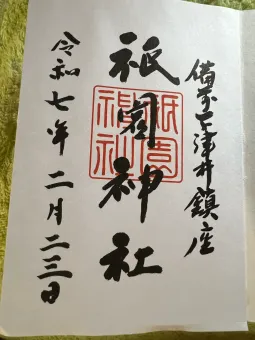 備前下津井鎮座
祇園神社
令和七年二月二三日
祇園神社